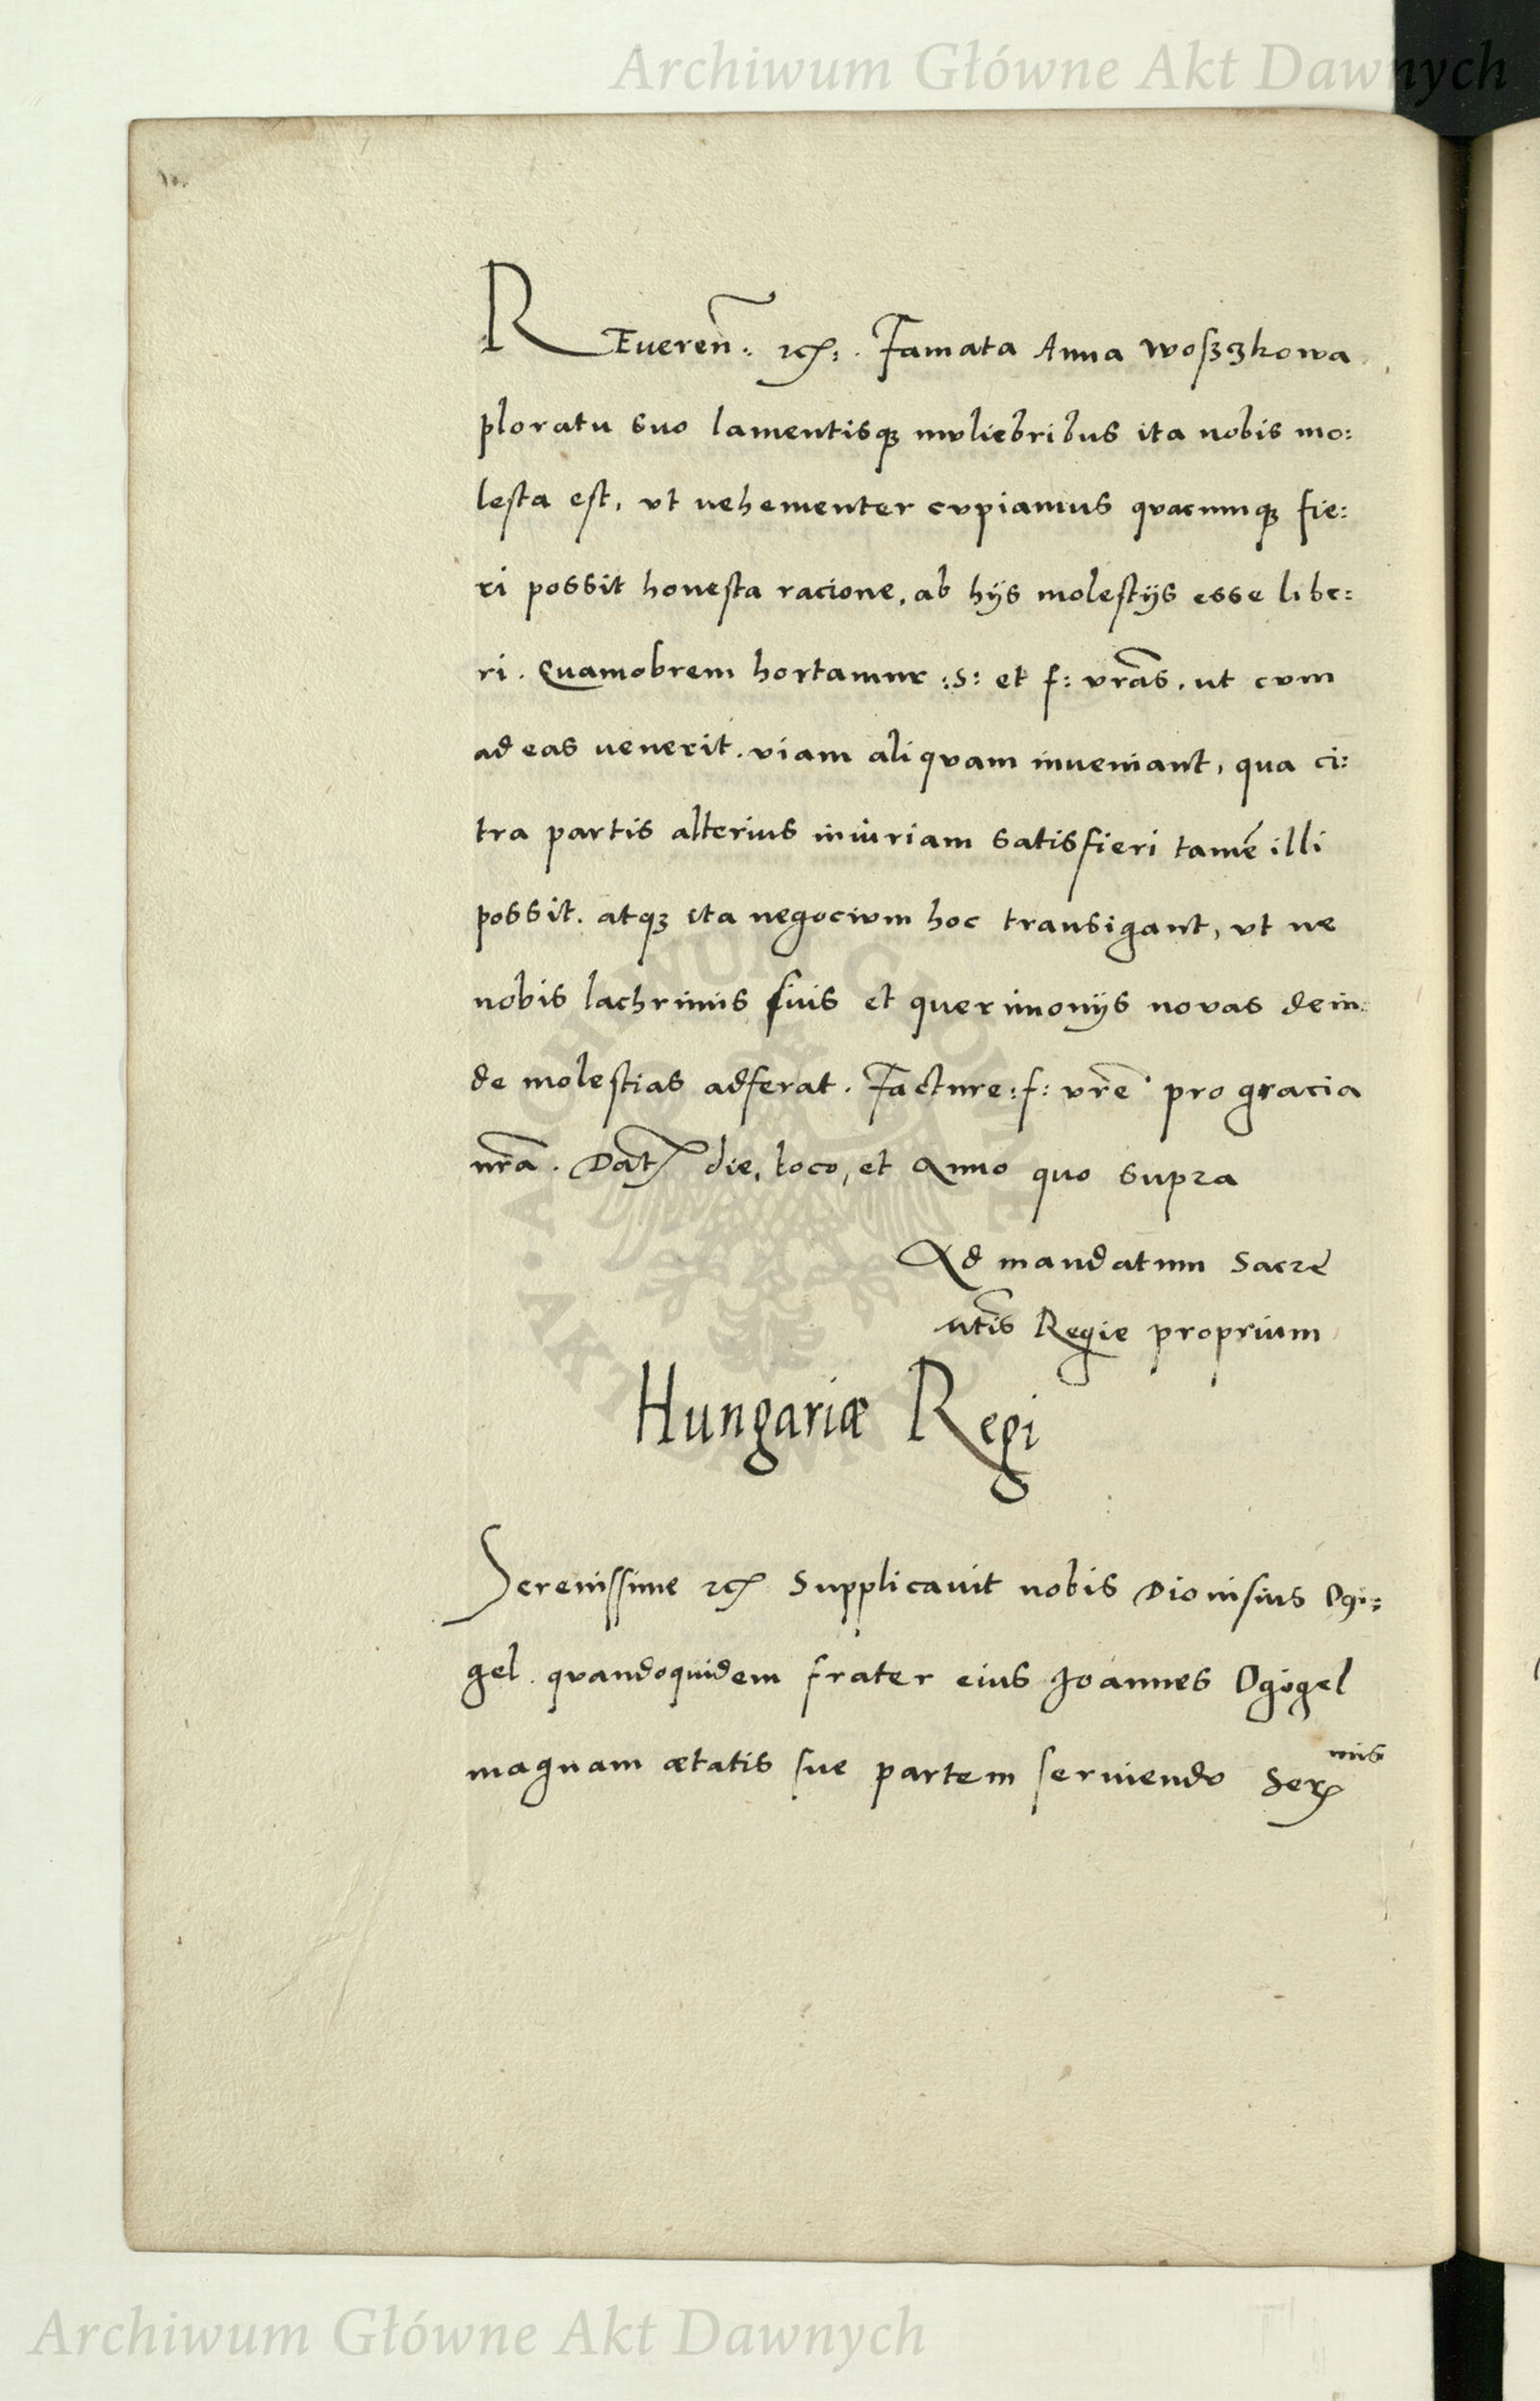 Archiwum Główne Akt Dawnych
REueren̄: etc: . Famata Anna Woszkowa
ploratu suo lamentisq3 muliebribus ita nobis mo:
lesta est, vt uehementer cvpiamus qvacumq3 fie:
ri possit honesta racione, ab hijs molestijs esse libe:
ri . Quamobrem hortamur :S: et f: vrās, ut cvm
ad eas uenerit. viam aliqvam inueniant, qua ci:
tra partis alterius iniuriam satisfieri tamē illi
possit. atq3 ita negocivm hoc transigant, vt ne
nobis lachrimis suis et querimonijs novas dein:
de molestias adferat . Facture :f: vrē pro gracia
nrā . Dat̄ die, loco, et Anno quo supra
Ad mandatum Sacre
Mtis̄ Regie proprium
Hungariæ Regi
Serenissime etc Supplicauit nobis Dionisius Ogi:
gel . qvandoquidem frater eius Joannes Ogigel
magnam ætatis sue partem seruiendo Ser mis
ARCHIWUM GŁÓWNE AKT DAWNYCH
Archiwum Główne Akt Dawnych